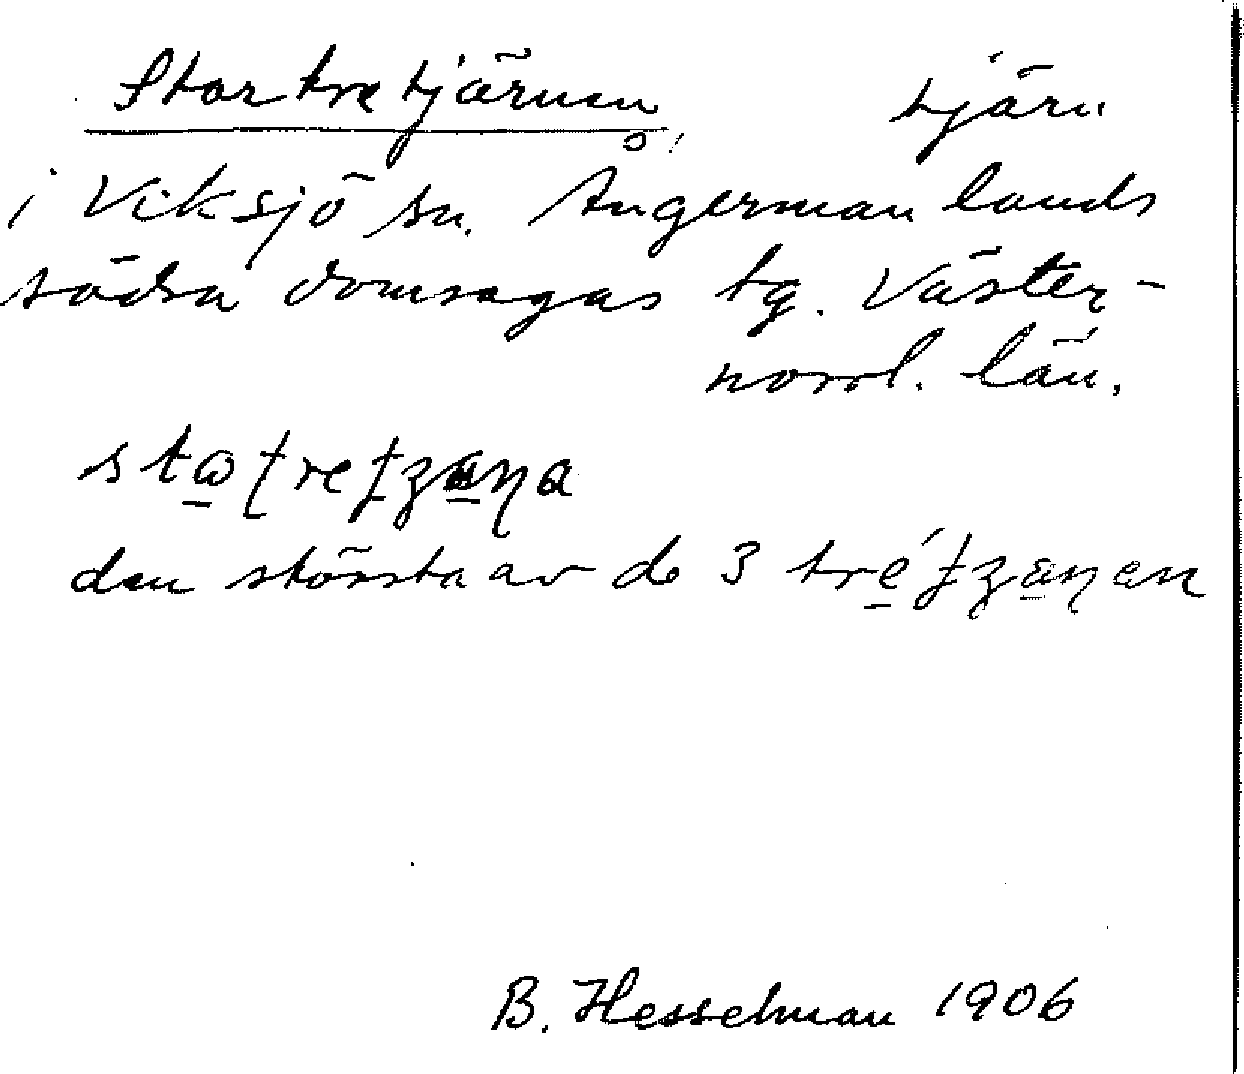 Stortretjärnen tjärn
i Viksjö sn. Ångermanlands
södra domsagas tg. Väster-
norrl. län.
den största av de 3
B. Hesselman 1906